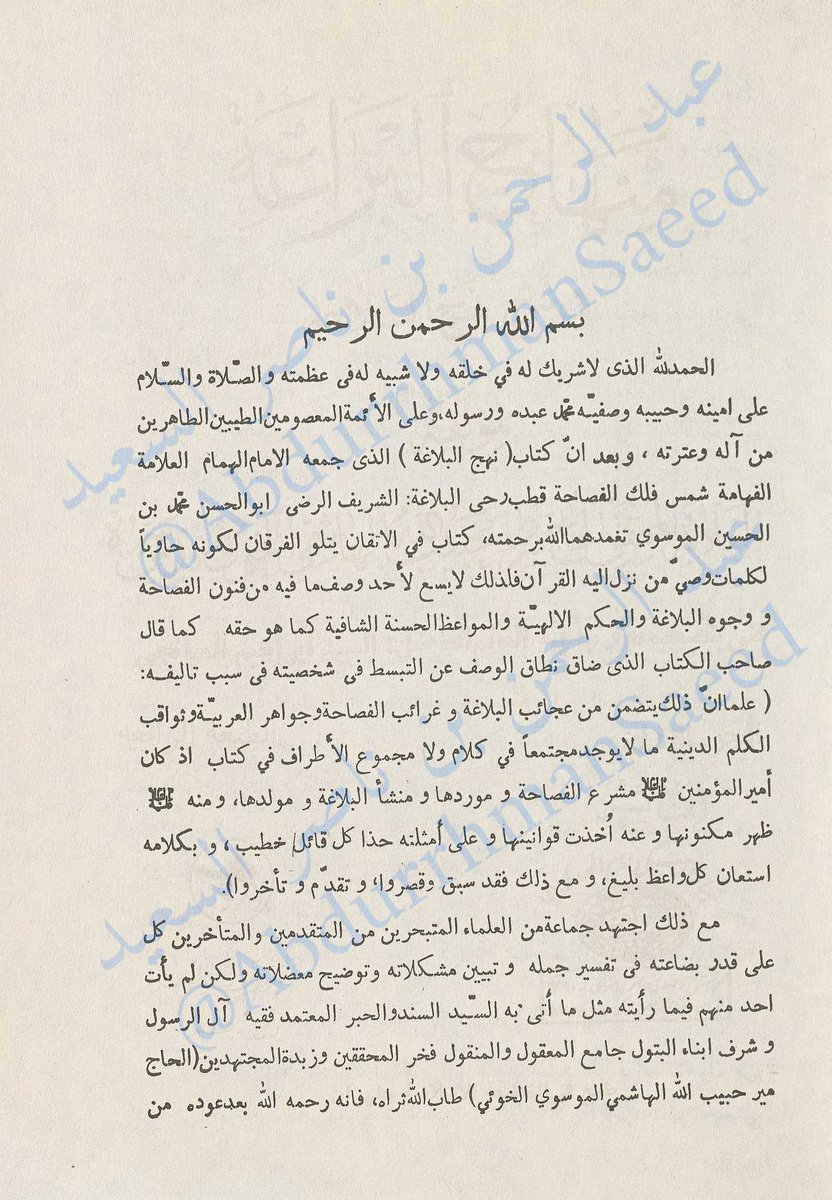 بسم الله الرحمن الرحيم
الحمدلله الذى لاشريك له في خلقه ولا شبيه له فى عظمته و الصّلاة والسّلام
على امينه وحبيبه وصفيّه محمد عبده ورسوله، وعلى الأئمة المعصومين الطيبين الطاهرين
من آله وعترته ، وبعد انّ كتاب ( نهج البلاغة ) الذى جمعه الامام الهمام العلامة
الفهامة شمس فلك الفصاحة قطب رحى البلاغة: الشريف الرضى ابوالحسن محمد بن
الحسين الموسوي تغمدهما الله برحمته، كتاب في الاتقان يتلو الفرقان لكونه حاوياً
لكلمات وصيّ من نزل اليه القرآن فلذلك لايسع لأحد وصف ما فيه من فنون الفصاحة
و وجوه البلاغة والحكم الالهيّة والمواعظ الحسنة الشافية كما هو حقه كما قال
صاحب الكتاب الذى ضاق نطاق الوصف عن التبسط فى شخصيته فى سبب تاليفه:
( علما انّ ذلك يتضمن من عجائب البلاغة و غرائب الفصاحة وجواهر العربيّة وثواقب
الكلم الدينية ما لايوجد مجتمعاً في كلام ولا مجموع الأطراف في كتاب اذ كان
أمير المؤمنين عليه السلام مشرع الفصاحة و موردها و منشأ البلاغة و مولدها، ومنه عليه السلام
ظهر مكنونها و عنه أُخذت قوانينها و على أمثلته حذا كل قائل خطيب ، و بكلامه
استعان كل واعظ بليغ، و مع ذلك فقد سبق وقصروا، و تقدّم و تأخروا).
مع ذلك اجتهد جماعة من العلماء المتبحرين من المتقدمين والمتأخرين كل
على قدر بضاعته فى تفسير جمله و تبيين مشكلاته وتوضيح معضلاته ولكن لم يأت
احد منهم فيما رأيته مثل ما أتى به السّيد السند والحبر المعتمد فقيه آل الرسول
و شرف ابناء البتول جامع المعقول والمنقول فخر المحققين وزبدة المجتهدين (الحاج
مير حبيب الله الهاشمي الموسوي الخوئي) طاب الله ثراه، فانه رحمه الله بعد عوده من
عبد الرحمن بن ناصر السعيد
@AbdurrhmanSaeed
عبد الرحمن بن ناصر السعيد
@AbdurrhmanSaeed